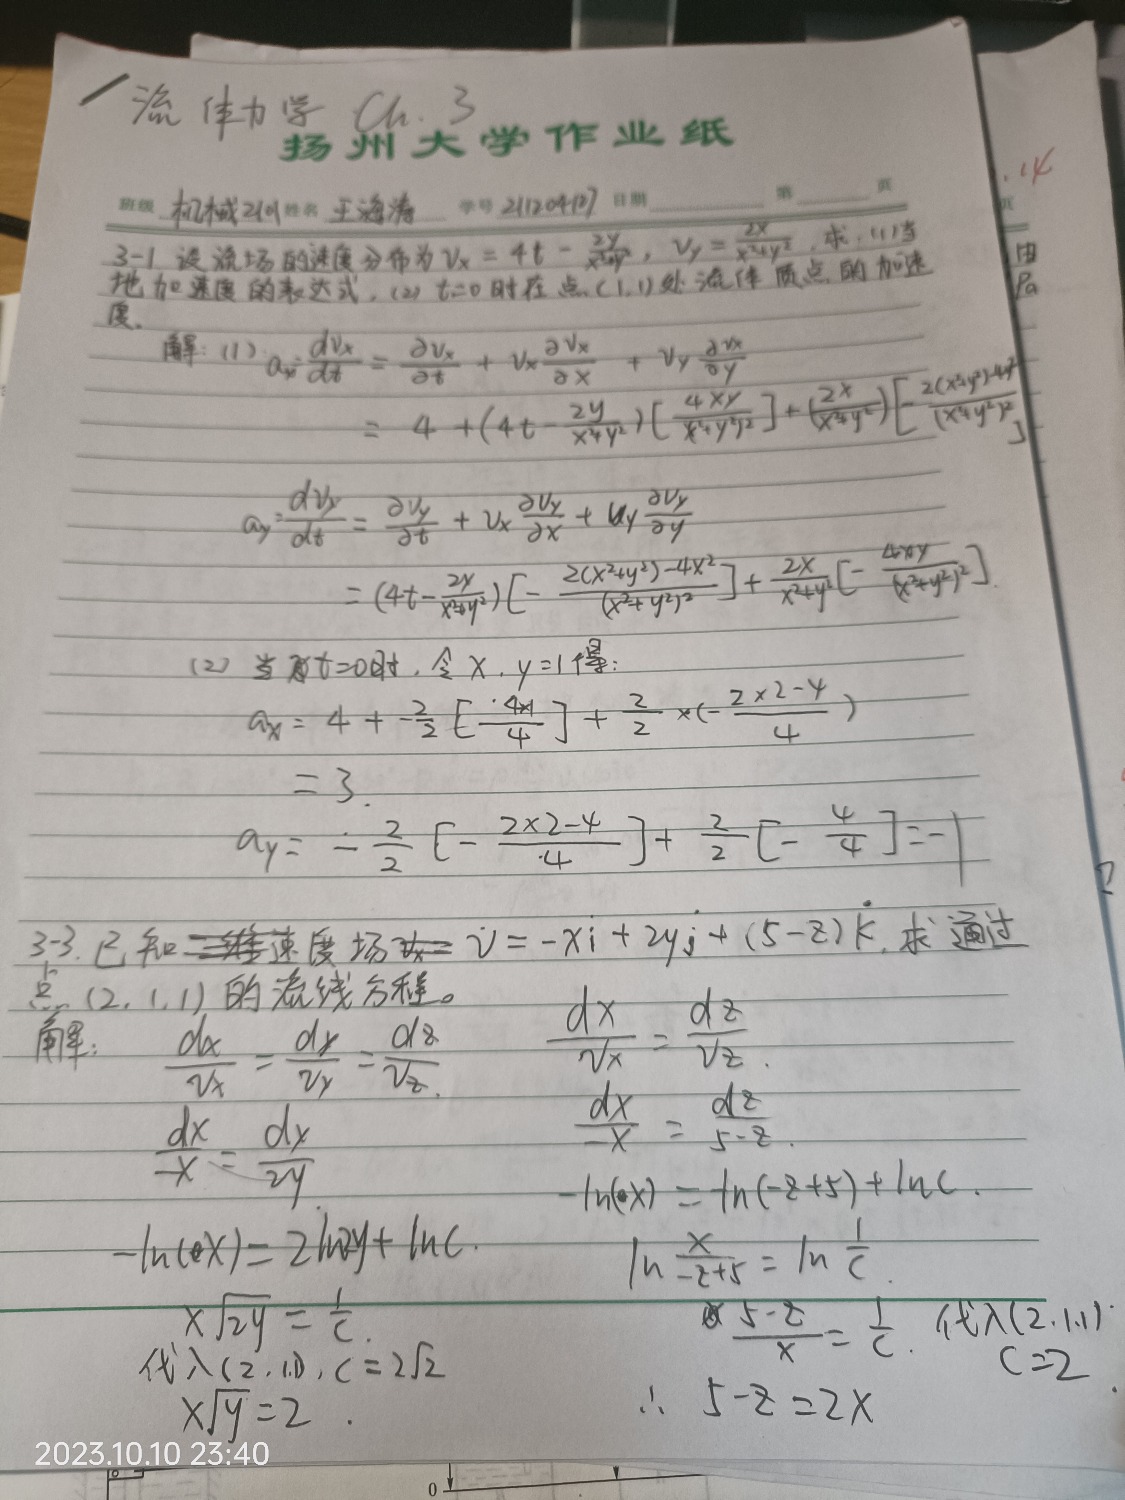 流体力学 Ch. 3
扬州大学作业纸
班级 机械2101 姓名 王海涛 学号 211204127 日期 第 页
3-1 设流场的速度分布为 Vx = 4t - 2y/(x²+y²), Vy = 2x/(x²+y²), 求: (1) 当
地加速度的表达式, (2) t=0时在点(1,1)处流体质点的加速
度.
解: (1) ax = dVx/dt = ∂Vx/∂t + Vx ∂Vx/∂x + Vy ∂Vx/∂y
= 4 + (4t - 2y/(x²+y²)) [4xy/(x²+y²)²] + (2x/(x²+y²)) [- (2(x²+y²)-4y²)/(x²+y²)²]
ay = dVy/dt = ∂Vy/∂t + Vx ∂Vy/∂x + Vy ∂Vy/∂y
= (4t - 2y/(x²+y²)) [- (2(x²+y²)-4x²)/(x²+y²)²] + 2x/(x²+y²) [- 4xy/(x²+y²)²].
(2) 当t=0时, 令x, y=1得:
ax = 4 + -2/2 [4×1/4] + 2/2 ×(- (2×2-4)/4)
= 3.
ay = - 2/2 [- (2×2-4)/4] + 2/2 [- 4/4] = -1
3-3. 已知速度场 v = -xi + 2yj + (5-z)k, 求通过
点 (2, 1, 1) 的流线方程。
解: dx/Vx = dy/Vy = dz/Vz.
dx/-x = dy/2y.
-ln(x) = 2ln2y + lnC.
x√2y = 1/C.
代入(2, 1.1), C = 2√2
x√y = 2.
dx/Vx = dz/Vz.
dx/-x = dz/5-z.
-ln(x) = ln(-z+5) + lnC.
ln x/-z+5 = ln 1/C.
5-z/x = 1/C. 代入(2.1.1)
C=2
∴ 5-z = 2x
2023.10.10 23:40
0
由
Pa